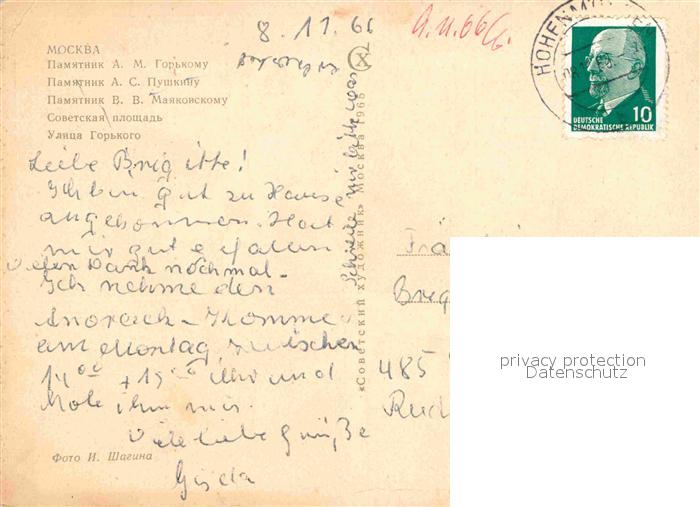 8.11.66
9.11.66
МОСКВА
Памятник А. М. Горькому
Памятник А. С. Пушкину
Памятник В. В. Маяковскому
Советская площадь
Улица Горького
HOHENM
DEUTSCHE
DEMOKRATISCHE REPUBLIK
10
Liebe Brigitte!
Ich bin gut zu Hause
angekommen. Hat
mir gut gefallen
Vielen Dank nochmal.
Ich nehme den
Anorack - Komme
am Montag zwischen
14 00 + 15 Uhr und
Hole ihn mir.
Viele liebe Grüße
Gisela
Schreibe mir bitte
«Советский художник» Москва 1966
Фото И. Шагина
Brig
485
privacy protection
Datenschutz